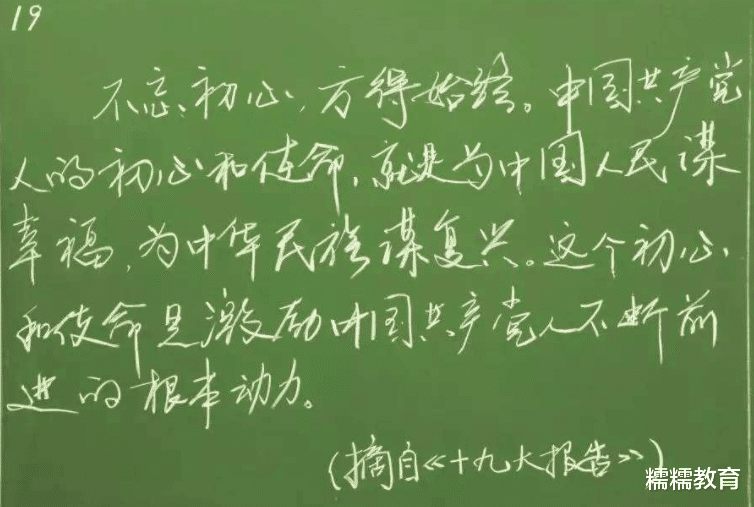 19
不忘初心,方得始终。中国共产党
人的初心和使命,就是为中国人民谋
幸福,为中华民族谋复兴。这个初心
和使命是激励中国共产党人不断前
进的根本动力。
(摘自《十九大报告》)
糯糯教育